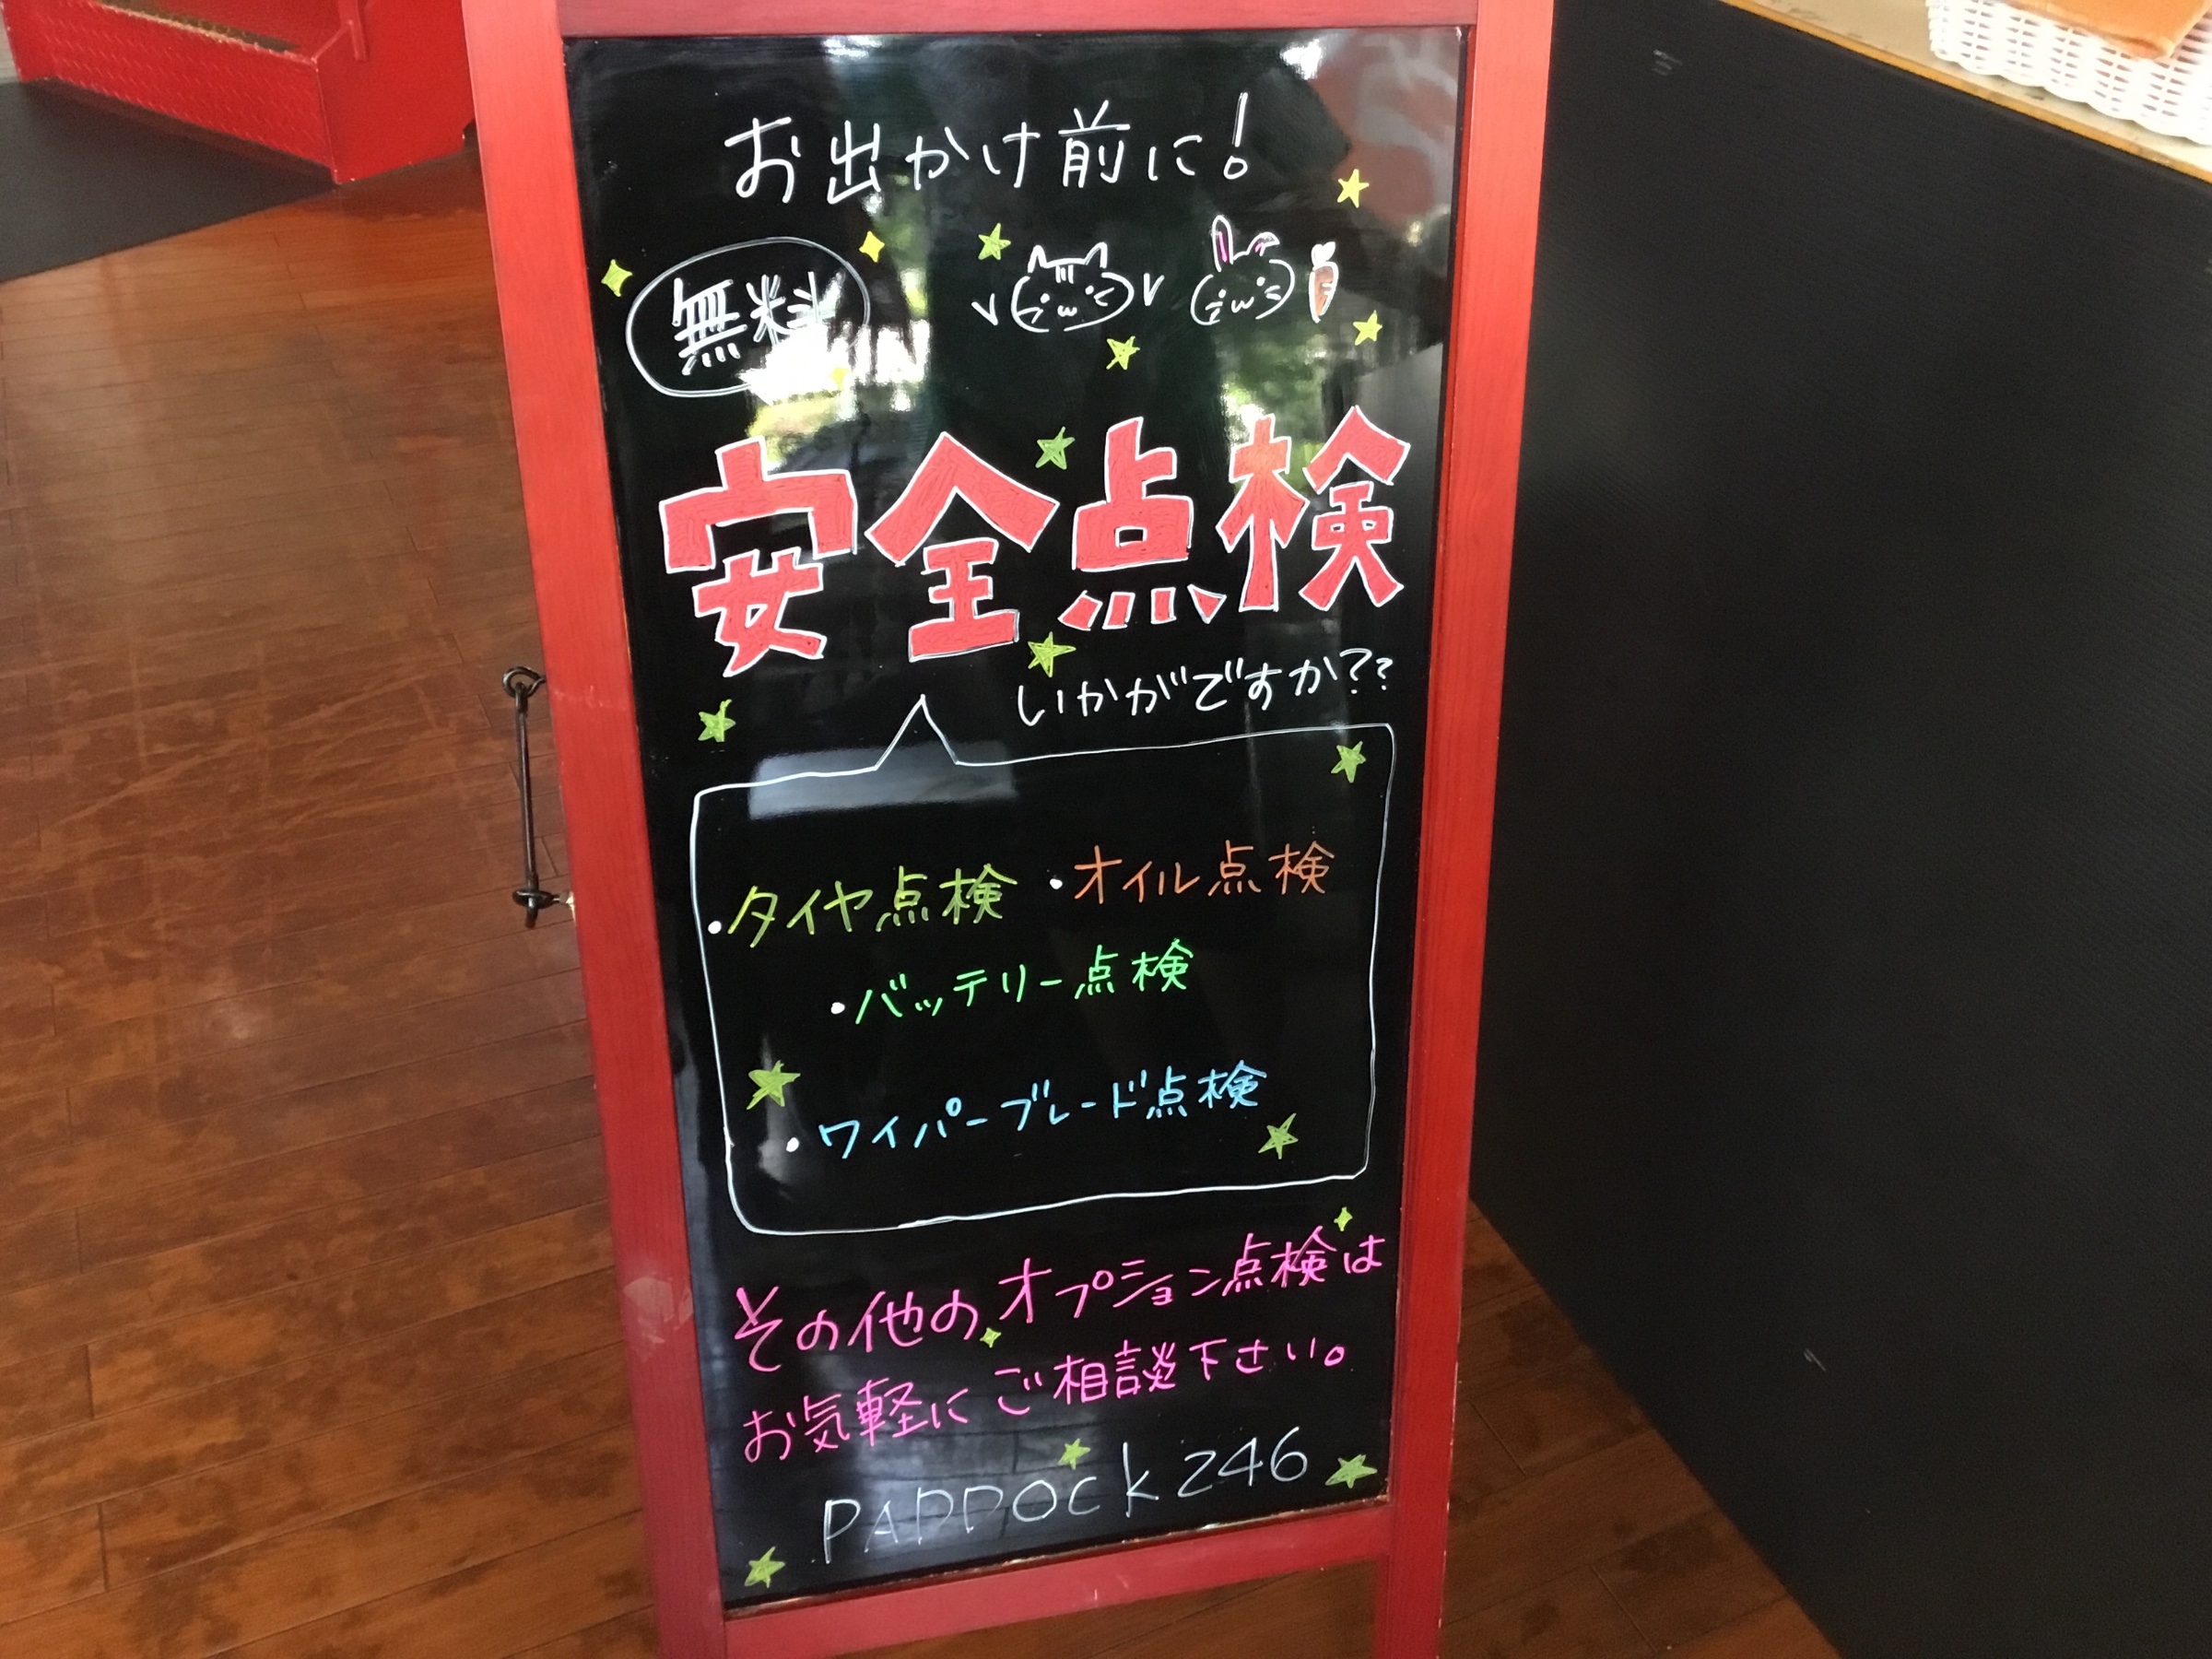 お出かけ前に!
無料
安全点検
いかがですか??
・タイヤ点検 ・オイル点検
・バッテリー点検
・ワイパーブレード点検
その他のオプション点検は
お気軽にご相談下さい。
PADDOCK 246